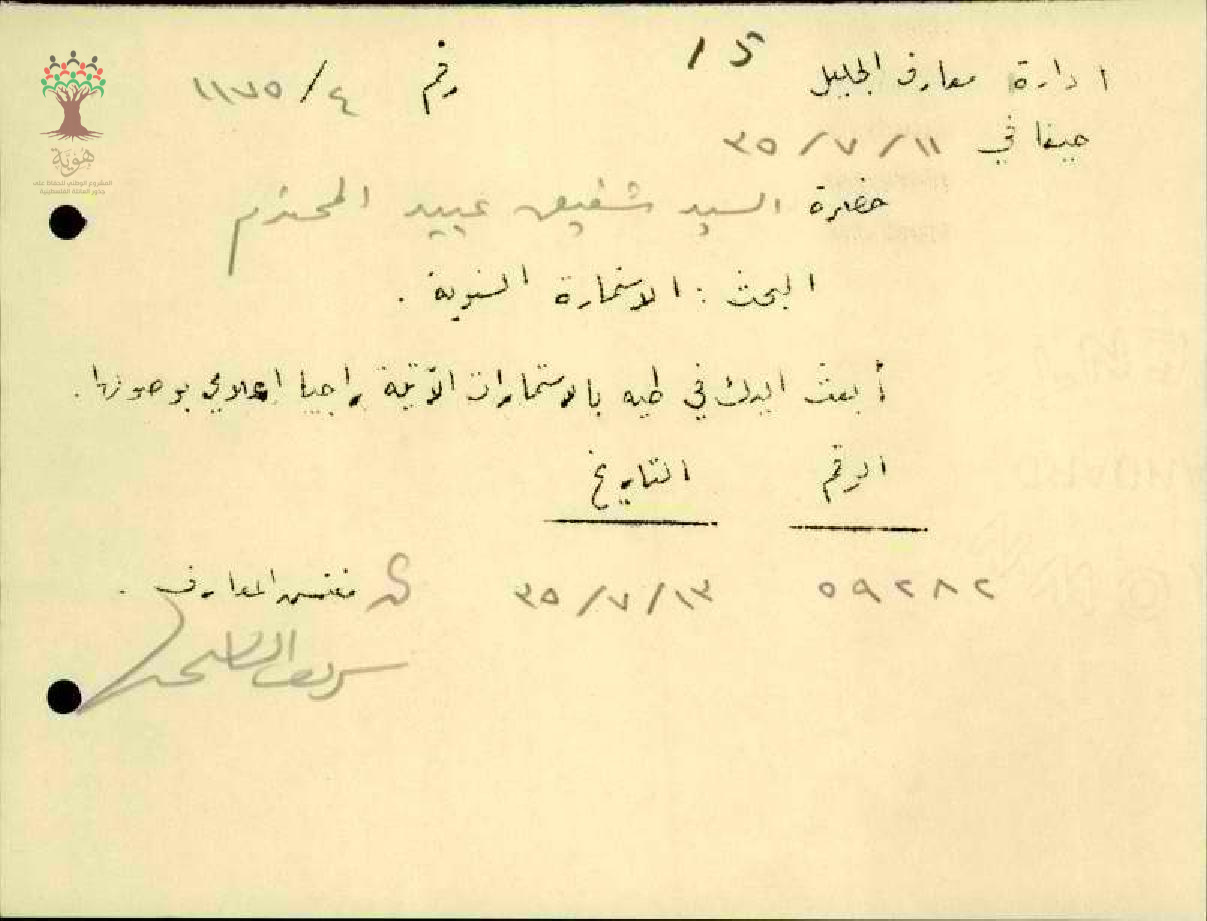 ادارة معارف الجليل
15
رقم ٤/١١٧٥
حيفا في ١١/٧/٣٥
حضرة السيد شفيق عبيد المحترم
البحث : الاستمارة السنوية .
أبعث اليك في طيه بالاستمارات الآتية راجيا اعلامي بوصولها .
الرقم التاريخ
٥٩٢٨٢ ١٣/٧/٣٥
مفتش المعارف .
هُويَّة
المشروع الوطني للحفاظ على
جذور العائلة الفلسطينية